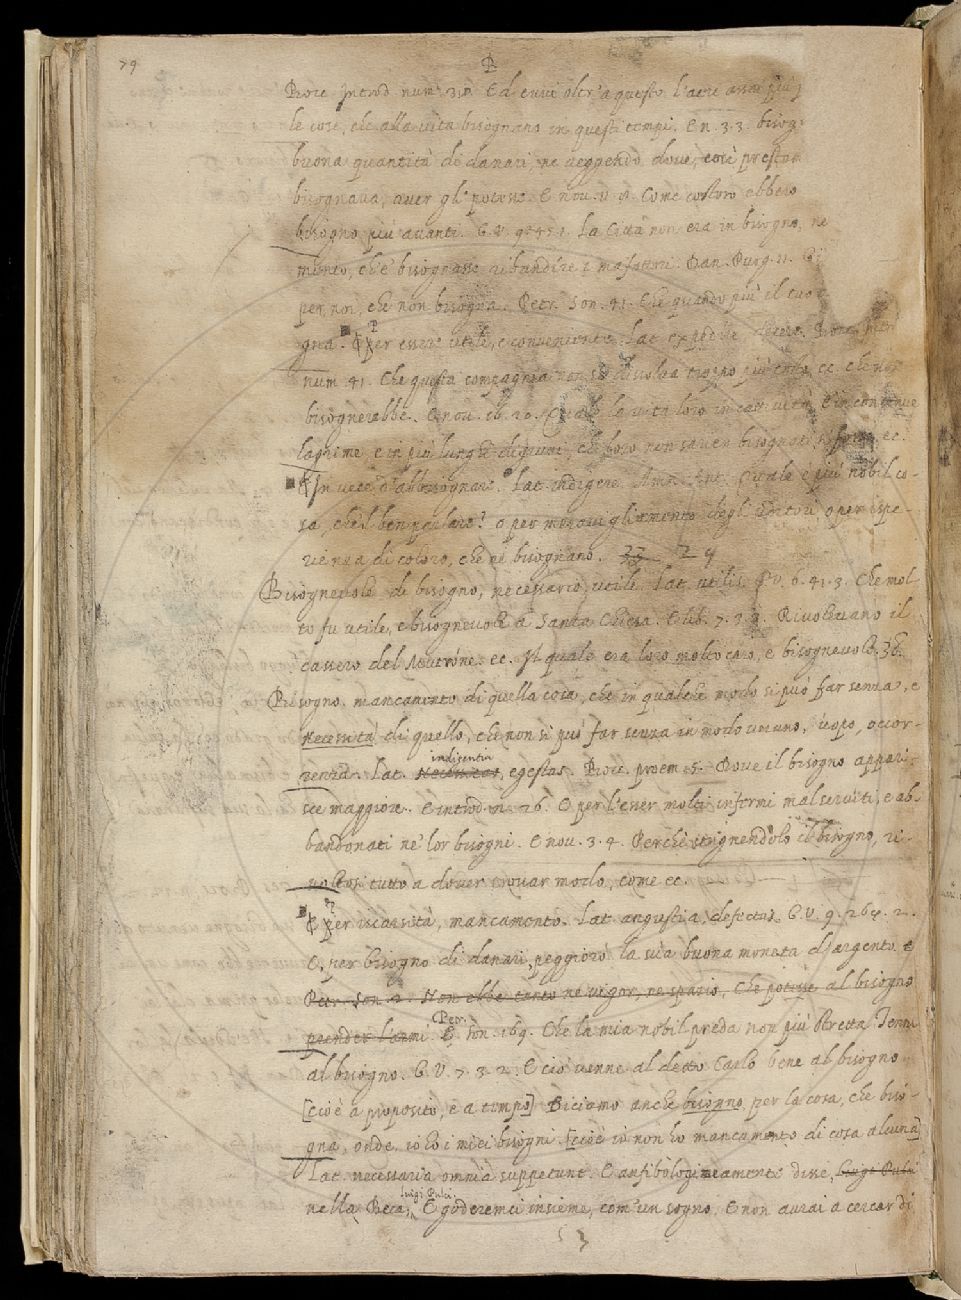 79
B
Bocc. Introd. num. 30. Ed evvi oltr'a questo l'aere assai più
le cose, che alla vita bisognano in questi tempi. E n. 3. 3. bisog
buona quantità di danari, ne veggendo dove, così prestam
bisognava, aver gli potesse. E nov. Come costoro ebbero
bisogno più avanti. G.V. La Città non era in bisogno, ne
mento, che bisognasse ribandire i malfattori. Dan. Purg. 11.
per noi, che non bisogna. Petr. Son. 41. Che quando più il tuo
gna. ¶ Per esser utile, e conveniente. Lat. expedire Bocc.
num. 41. Che questa compagnia non si dissolva troppo più tosto, ec. che non
bisognerebbe. E nov. 16. 20. la vita loro in cattività E in continue
lagrime, e in più lunghi digiuni, che loro non saren bisognati si forse ec.
¶ In vece d'abbisognare. Lat. indigere. Amm. Ant. Quale è più nobil co-
sa, che'l ben parlare? o per maravigliamento degli Uditori o per ispe-
ranza di coloro, che ne bisognano. 33 29
Bisognevole di bisogno, necessario, utile. Lat. utilis. G.V. 6. 41. 3. Che mol-
to fu utile, e bisognevole a Santa Chiesa. E lib. 7. Rivolevano il
cassero del Mutrone. ec. Il quale era loro molto caro, e bisognevole. 36.
Bisogno. mancamento di quella cosa, che in qualche modo si può far senza, e
Necessità di quello, che non si può far senza in modo veruno, uopo, occor-
indigentia
renza. Lat. Necessitas, egestas. Bocc. proem. 5. Dove il bisogno appari-
sce maggiore. E introd. n. 26. E per l'esser molti infermi mal serviti, e ab-
bandonati ne' lor bisogni. E nov. 3. 4. Perchè strignendolo il bisogno, ri-
voltosi tutto a dover trovar modo, come ec.
¶ Per iscarsità, mancamento. Lat. angustia, defectus. G.V. 9. 264. 2.
E, per bisogno di danari, peggiorò la sua buona moneta d'argento. E
Petr. Son. 2. Non ebbe tanto ne vigor, ne spazio, Che potesse al bisogno
Petr.
prender l'armi. E son. 169. Che la mia nobil preda non più stretta Tenni
al bisogno. G.V. 7. 3. 2. E ciò venne al detto Carlo bene al bisogno
[cioè a proposito, e a tempo] Diciamo anche bisogno, per la cosa, che biso-
gna, onde, io ho i miei bisogni. [cioè io non ho mancamento di cosa alcuna]
Lat. necessaria omnia suppetunt. E anfibologicamente disse, Luigi Pulci
Luigi Pulci
nella Beca, E goderemci insieme, com'un sogno, E non avrai a cercar di